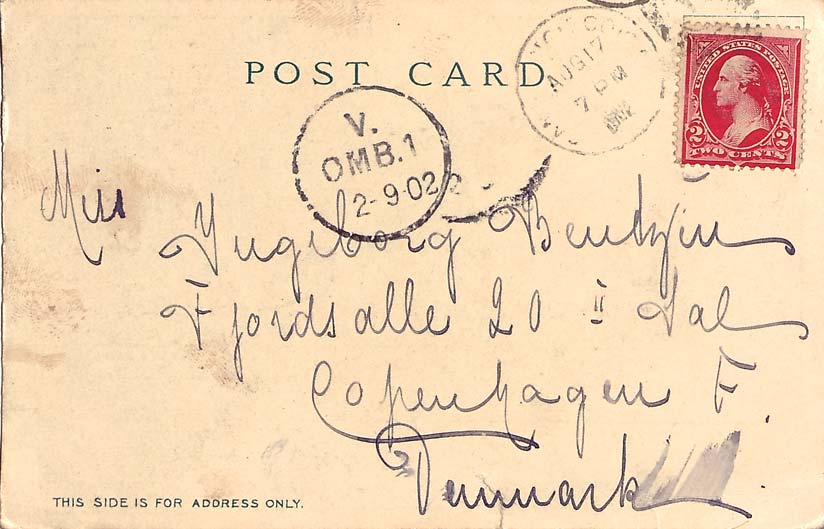 POST CARD
AUG 17
7 PM
1902
UNITED STATES POSTAGE
2 2
TWO CENTS
V.
OMB.1
2-9-02
Miss
Ingeborg
Fjordsalle 20 II Sal
Copenhagen F
Denmark
THIS SIDE IS FOR ADDRESS ONLY.